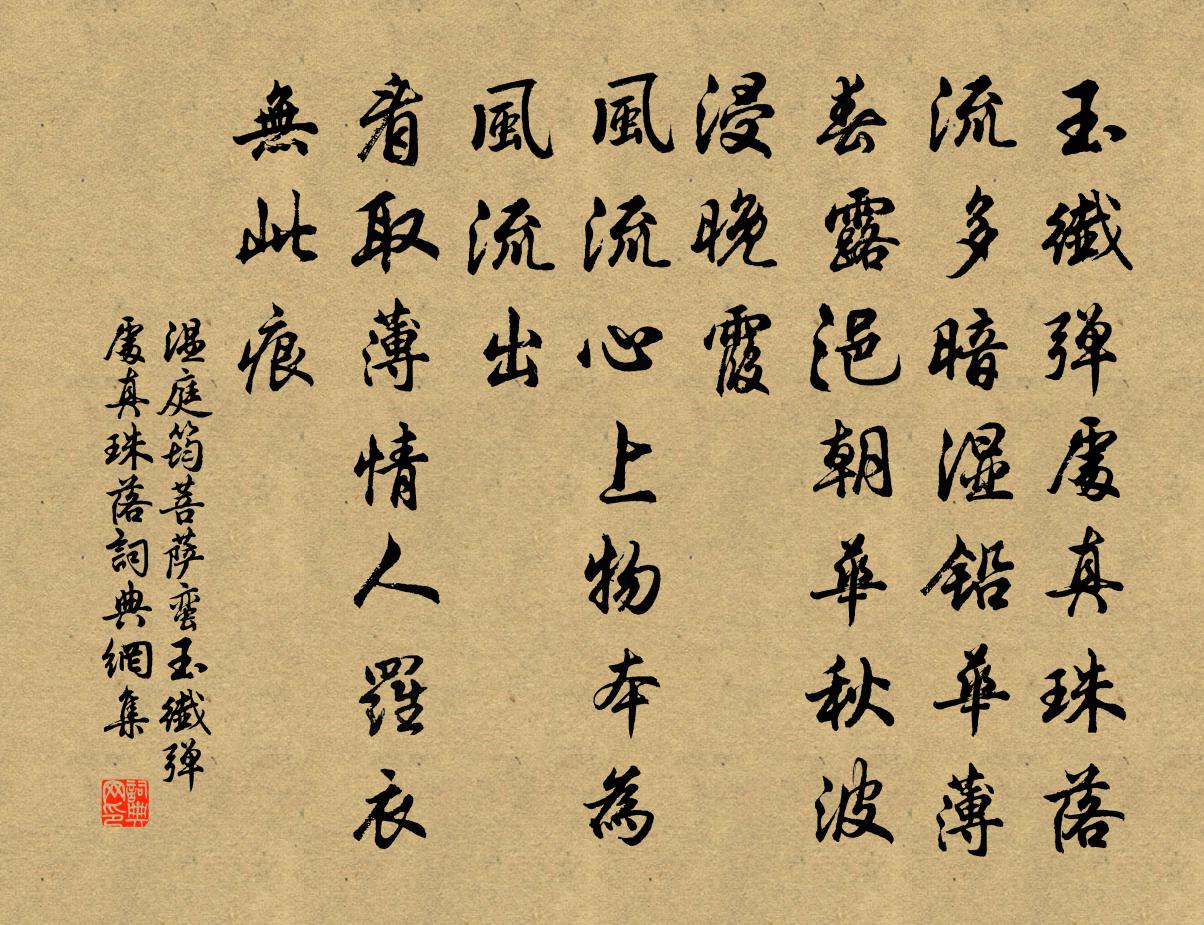 玉纖彈處真珠落
流多暗濕鉛華薄
春露浥朝華秋波
浸晚霞
風流心上物本為
風流出
看取薄情人羅衣
無此痕
溫庭筠菩薩蠻玉纖彈
處真珠落詞典網集
詞典網印